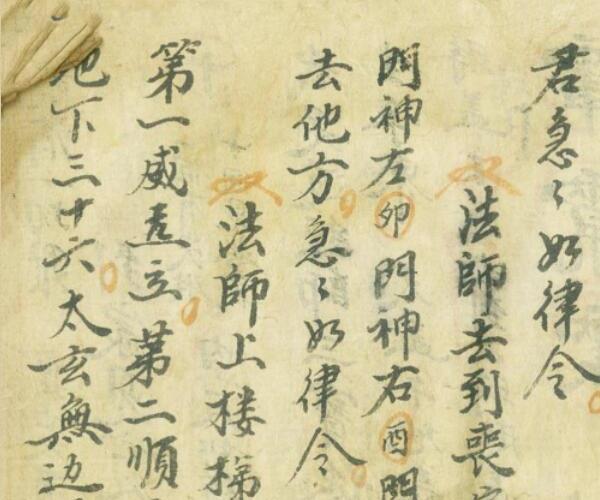 君急〻如律令
法師去到喪
門神左卯門神右酉門
去他方急〻如律令
法師上楼梯
第一威直立第二順
地下三十六太玄無边